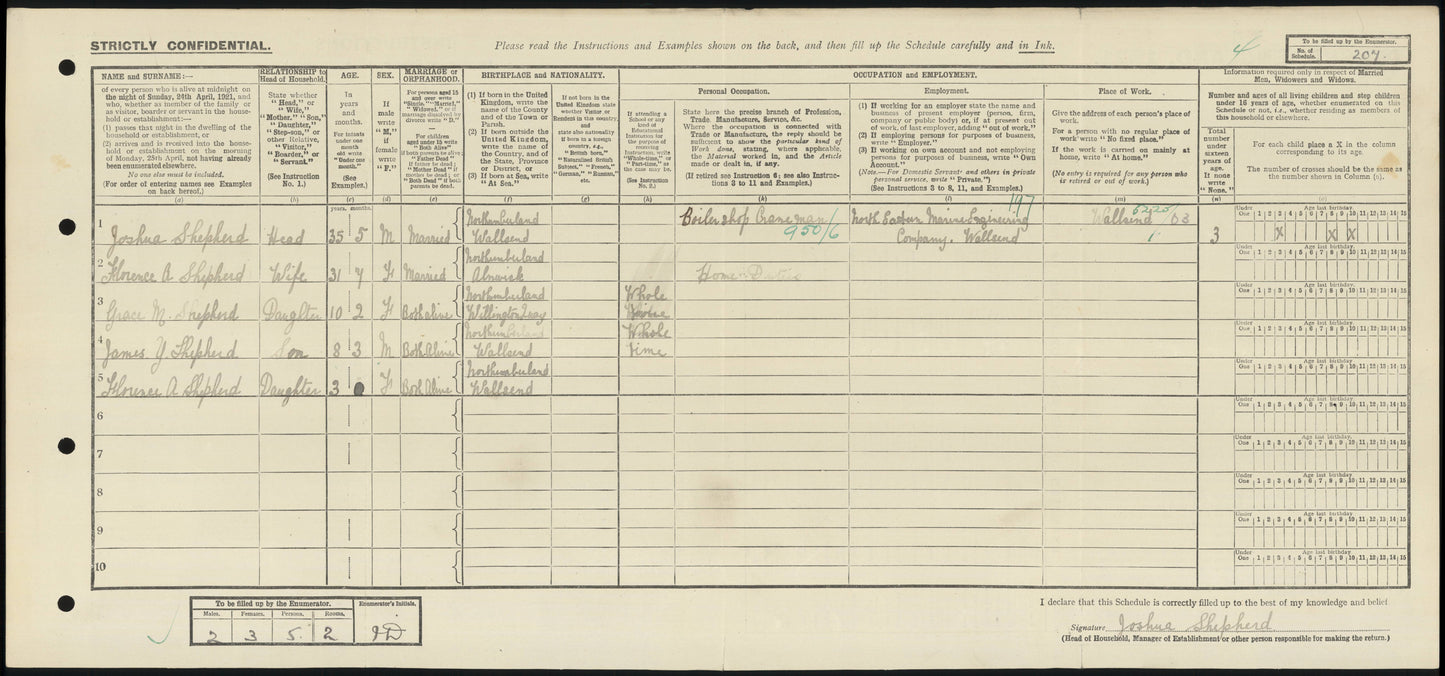 STRICTLY CONFIDENTIAL.
Please read the Instructions and Examples shown on the back, and then fill up the Schedule carefully and in Ink.
4
To be filled up by the Enumerator.
No. of Schedule. 207.
NAME and SURNAME:—
of every person who is alive at midnight on the night of Sunday, 24th April, 1921, and who, whether as member of the family or as visitor, boarder or servant in the household or establishment:—
(1) passes that night in the dwelling of the household or establishment, or
(2) arrives and is received into the household or establishment on the morning of Monday, 25th April, not having already been enumerated elsewhere.
No one else must be included.
(For order of entering names see Examples on back hereof.)
(a)
RELATIONSHIP to Head of Household.
State whether "Head," or "Wife," "Mother," "Son," "Daughter," "Step-son," or other Relative, "Visitor," "Boarder," or "Servant."
(See Instruction No. 1.)
(b)
AGE.
In years and months.
For infants under one month old write "Under one month."
(See Examples.)
(c)
SEX.
If male write "M," if female write "F."
(d)
MARRIAGE or ORPHANHOOD.
For persons aged 15 and over write "Single," "Married," "Widowed," or if marriage dissolved by divorce write "D."
For children aged under 15 write "Both Alive" if both parents be alive; "Father Dead" if father be dead; "Mother Dead" if mother be dead; or "Both Dead" if both parents be dead.
(e)
BIRTHPLACE and NATIONALITY.
(1) If born in the United Kingdom, write the name of the County and of the Town or Parish.
(2) If born outside the United Kingdom, write the name of the Country, and of the State, Province or District, or
(3) If born at Sea, write "At Sea."
(f)
If not born in the United Kingdom state whether Visitor or Resident in this country, and
If born in a foreign country, e.g., "British born," "Naturalised British Subject," "French," "German," "Russian," etc.
(g)
OCCUPATION AND EMPLOYMENT.
If attending a School or any kind of Educational Institution for the purpose of receiving Instruction, write "Whole-time," or "Part-time," as the case may be.
(See Instruction No. 2.)
(h)
Personal Occupation.
State here the precise branch of Profession, Trade, Manufacture, Service, &c.
Where the occupation is connected with Trade or Manufacture, the reply should be sufficient to show the particular kind of Work done, stating, where applicable, the Material worked in, and the Article made or dealt in, if any.
(If retired see Instruction 6; see also Instructions 3 to 11 and Examples.)
(k)
Employment.
(1) If working for an employer state the name and business of present employer (person, firm, company or public body) or, if at present out of work, of last employer, adding "out of work."
(2) If employing persons for purposes of business, write "Employer."
(3) If working on own account and not employing persons for purposes of business, write "Own Account."
(Note.—For Domestic Servant and others in private personal service, write "Private.")
(See Instructions 3 to 8, 11, and Examples.)
(l)
Place of Work.
Give the address of each person's place of work.
For a person with no regular place of work write "No fixed place."
If the work is carried on mainly at home, write "At home."
(No entry is required for any person who is retired or out of work.)
(m)
Information required only in respect of Married Men, Widowers and Widows.
Number and ages of all living children and step children under 16 years of age, whether enumerated on this Schedule or not, i.e., whether residing as members of this household or elsewhere.
Total number under sixteen years of age. If none write "None."
(n)
For each child place a X in the column corresponding to its age.
The number of crosses should be the same as the number shown in Column (n).
(o)
years. months.
1 Joshua Shepherd Head 35 5 M Married Northumberland Wallsend Boiler shop Craneman 950/6 North Eastern Marine Engineering Company. Wallsend 197 Wallsend 3
Under One 1 2 3 4 5 6 7 8 9 10 11 12 13 14 15
Age last birthday.
X X X
2 Florence A Shepherd Wife 31 4 F Married Northumberland Alnwick Home Duties
3 Grace M. Shepherd Daughter 10 2 F Both alive Northumberland Willington Quay Whole time
4 James Y Shepherd Son 8 3 M Both Alive Northumberland Wallsend Whole time
5 Florence A Shepherd Daughter 3 F Both Alive Northumberland Wallsend
6
7
8
9
10
To be filled up by the Enumerator.
Males. Females. Persons. Rooms.
2 3 5. 2
Enumerator's Initials.
JD
I declare that this Schedule is correctly filled up to the best of my knowledge and belief
Signature Joshua Shepherd
(Head of Household, Manager of Establishment or other person responsible for making the return.)